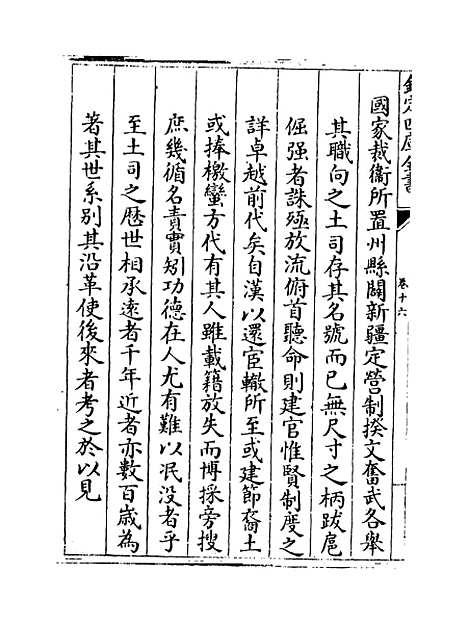 欽定四庫全書
卷十六
國家裁衞所置州縣闢新疆定營制揆文奮武各舉
其職向之土司存其名號而已無尺寸之柄跋扈
倔强者誅殛放流俯首聽命則建官惟賢制度之
詳卓越前代矣自漢以還宦轍所至或建節裔土
或捧檄蠻方代有其人雖載籍放失而博採旁搜
庶幾循名責實矧功德在人尤有難以泯没者乎
至土司之歴世相承遠者千年近者亦數百歲為
著其世系别其沿革使後來者考之於以見